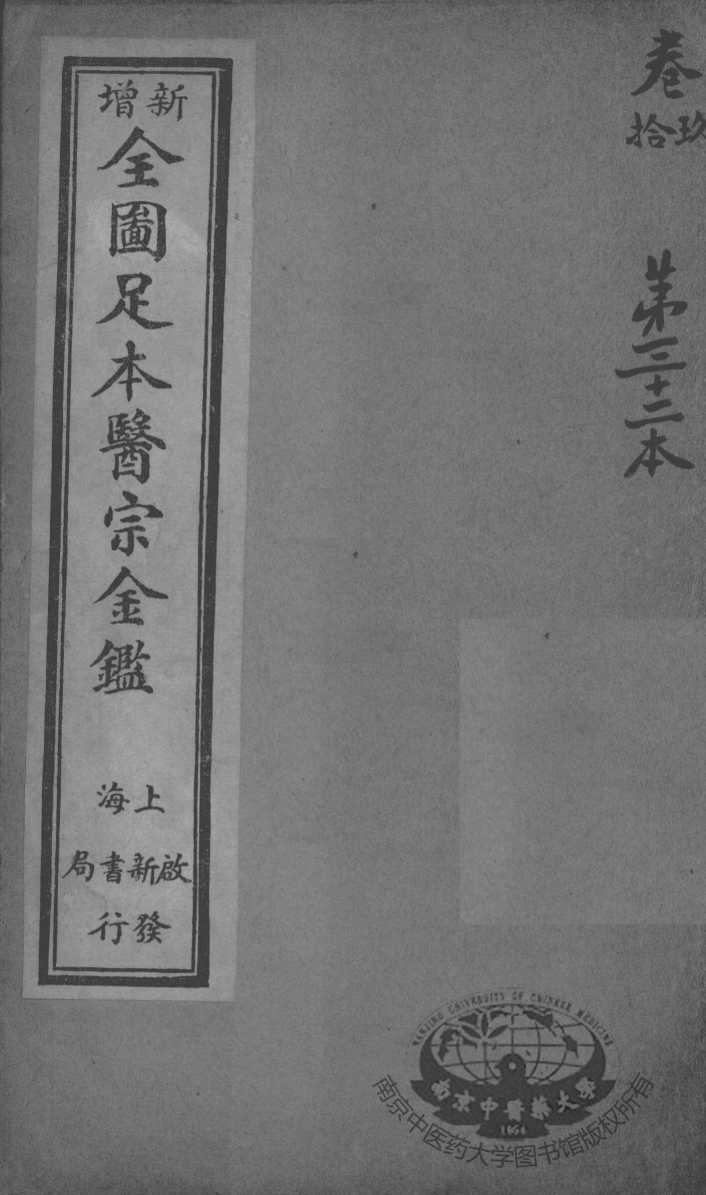 卷
玖拾
第三十二本
新增
全圖足本醫宗金鑑
上海
啟新書局
發行
NANJING UNIVERSITY OF CHINESE MEDICINE
南京中醫藥大學
1954
南京中医药大学图书馆版权所有